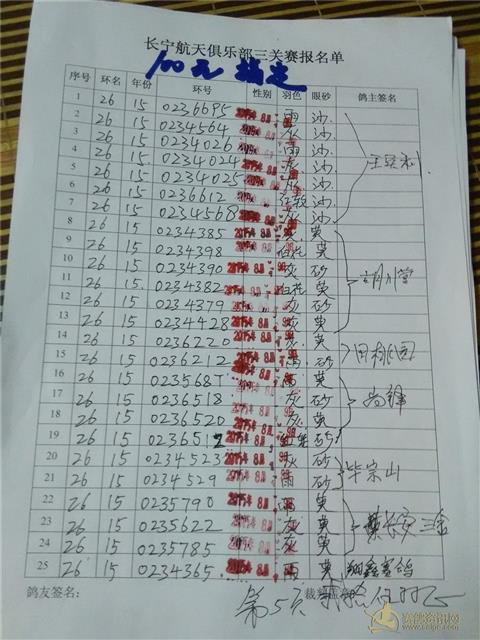 长宁航天俱乐部三关赛报名单
100元
序号 环名 年份 环号 性别 羽色 眼砂 鸽主签名
1 26 15 0236695 雨 沙
2 26 15 0234564 灰 沙
3 26 15 0234026 雨 沙
4 26 15 0234024 灰 沙
5 26 15 0234025 灰 沙
6 26 15 0236612 红轮 沙
7 26 15 0234568 灰 沙
8 26 15 0234385 灰 黄
9 26 15 0234398 白花 黄
10 26 15 0234390 灰 砂
11 26 15 0234382 白花 黄
12 26 15 0234379 灰 砂
13 26 15 0234428 灰 黄
14 26 15 0236220 灰 黄
15 26 15 0236212 雨 砂 田桃园
16 26 15 0235687 雨 黄
17 26 15 0236518 灰 砂 尚锋
18 26 15 0236520 灰 黄
19 26 15 0236512 砂
20 26 15 0234523 灰 砂
21 26 15 0234529 雨 砂 毕宗山
22 26 15 0235790 雨 黄
23 26 15 0235622 灰 黄
24 26 15 0235785 灰 黄
25 26 15 0234365 雨 黄 翔鑫赛鸽
鸽友签名： 裁判盖章
第5页